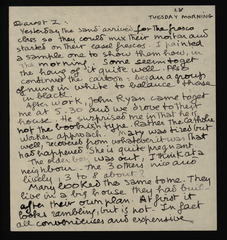 TUESDAY MORNING
Dearest Z.
Yesterday the sand arrived for the fresco
class so they could mix their mortar and
started on their class frescos. I painted
a sample one to show them how, in
the morning. Some seem to get
the hang of it quite well. Also
continued the and began a group
of nuns in white to balance those
in black.
After work, John Ryan came to get
me at 5-30 and we drove to their
house. He surprised me in that he is
not the type. Rather the Catholic
Worker approach. Mary was tired but
well, recovered from whatever it was that
had happened. She is quite pregnant
The older boy was out, I think at a
neighbour. The 3 others nice and
lively 13 to 8 about?
Mary looked the same to me. They
live in a big house they had built
after their own plan. At first it
looks rambling, but is not. In fact
all conveniences and expensive